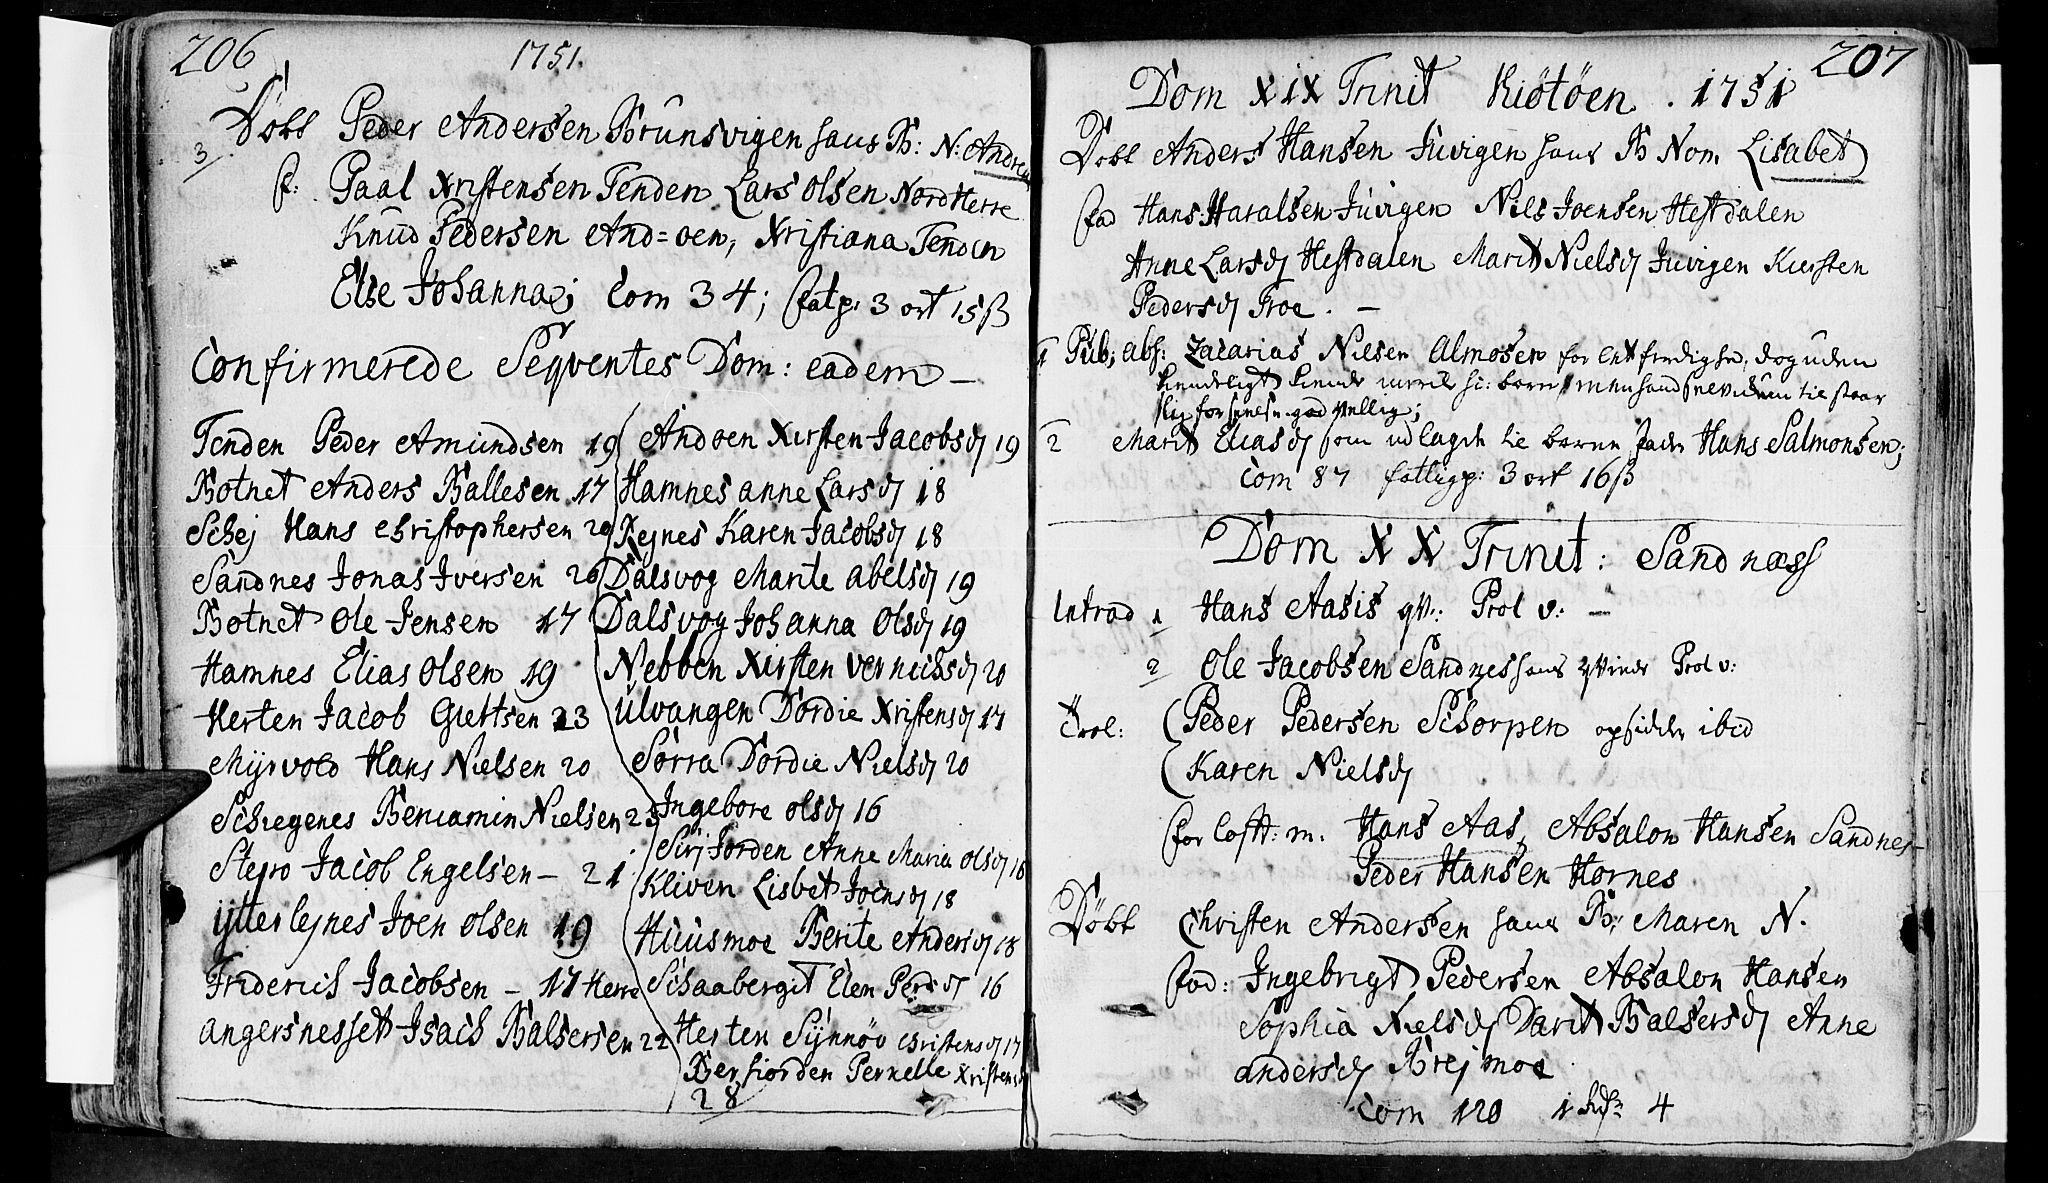 206 1751.
3 Döbt Peder Andersen Brunsvigen hans B: N: Andreas
f: Paal Xristensen Tenden Lars Olsen Nord Herre
Knud Pedersen And=öen, Xristiana Tenden
Else Johanna; Com 34; fatp: 3 ort 15 ß
Confirmerede Seqventes Dom: eadem –
Tenden Peder Amundsen 19
Botnet Anders Ballesen 17
Schej Hans Christophersen 20
Sandnes Jonas Iversen 20
Botnet Ole Jensen 17
Hamnes Elias Olsen 19
Herten Jacob Giertsen 23
Mijrvold Hans Nielsen 20
Schegenes Beniamin Nielsen 23
Stepro Jacob Engelsen – 21
ijtterlejnes Joen Olsen 19
Friderich Jacobsen – 17 Herre
angersnesset Isach Balsersen 22
Andoen Xirsten Jacobsd 19
Hamnes anne Larsd 18
Rejnes Karen Jacobsd 18
Dalsvog Marite Abelsd 19
Dalsvog Johanna Olsd 19
Nebben Xirsten vernichsd 20
Ulvangen Dordie Xristensd 17
Sörra Dordie Nielsd 20
Ingebore Olsd 16
Sirjorden Anne Maria Olsd 18
Kliven Lisbet Joensd 18
Huusmoe Berite Andersd 18
Schaaberget Elen Persd 16
Herten Sijnnöv Christensd 17
Berfiorden Pernelle Xristensd
28
207
Dom XIX Trinit Kiötöen . 1751
Döbt Anders Hansen Juvigen hans B Nom. Lisabet
fad Hans Haralsen Juvigen Nils Joensen Hestdalen
Anne Larsd Hestdalen Marit Nielsd Juvigen Kiersten
Pedersd Troe . –
1 Pub; abs: Zacarias Nilsen Almosen for dog uden
hans
2 Marit Eliasd som udlagde til barne fader Hans Salmonsen;
Com 87 fattigp: 3 ort 16 ß
Dom XX Trinit: Sandnæss
Introd 1 Hans Aasis qv: Prol v: –
2 Ole Jacobsen Sandnes hans qvinde Prol v:
Trol: Peder Pedersen Schorpen opsidder ibid
Karen Nielsd
for loft: m. Hans Aas, Absalon Hansen Sandnes
Peder Hansen Hornes
Döbt Christen Andersen hans B: Maren N.
fad: Ingebrigt Pedersen Absalon Hansen
Sophia Nielsd Darit Balsersd Anne
andersd Brejmoe
Com 120 4